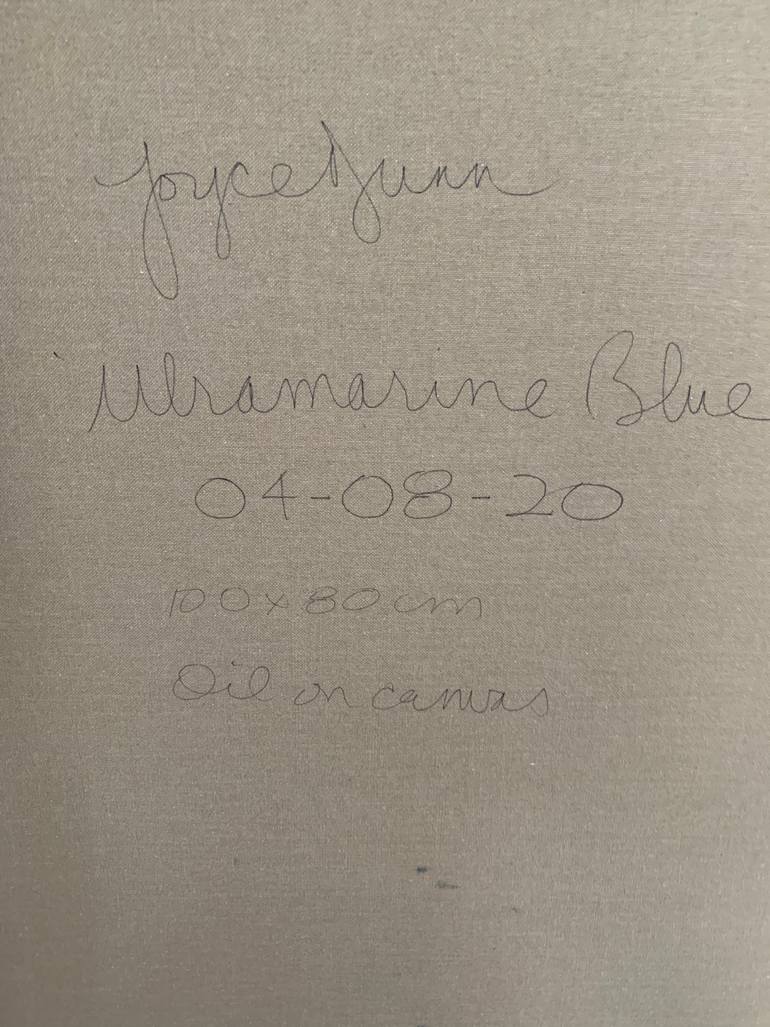 Joyce
Ulramarine Blue
04-08-20
100x80cm
Oil on canvas